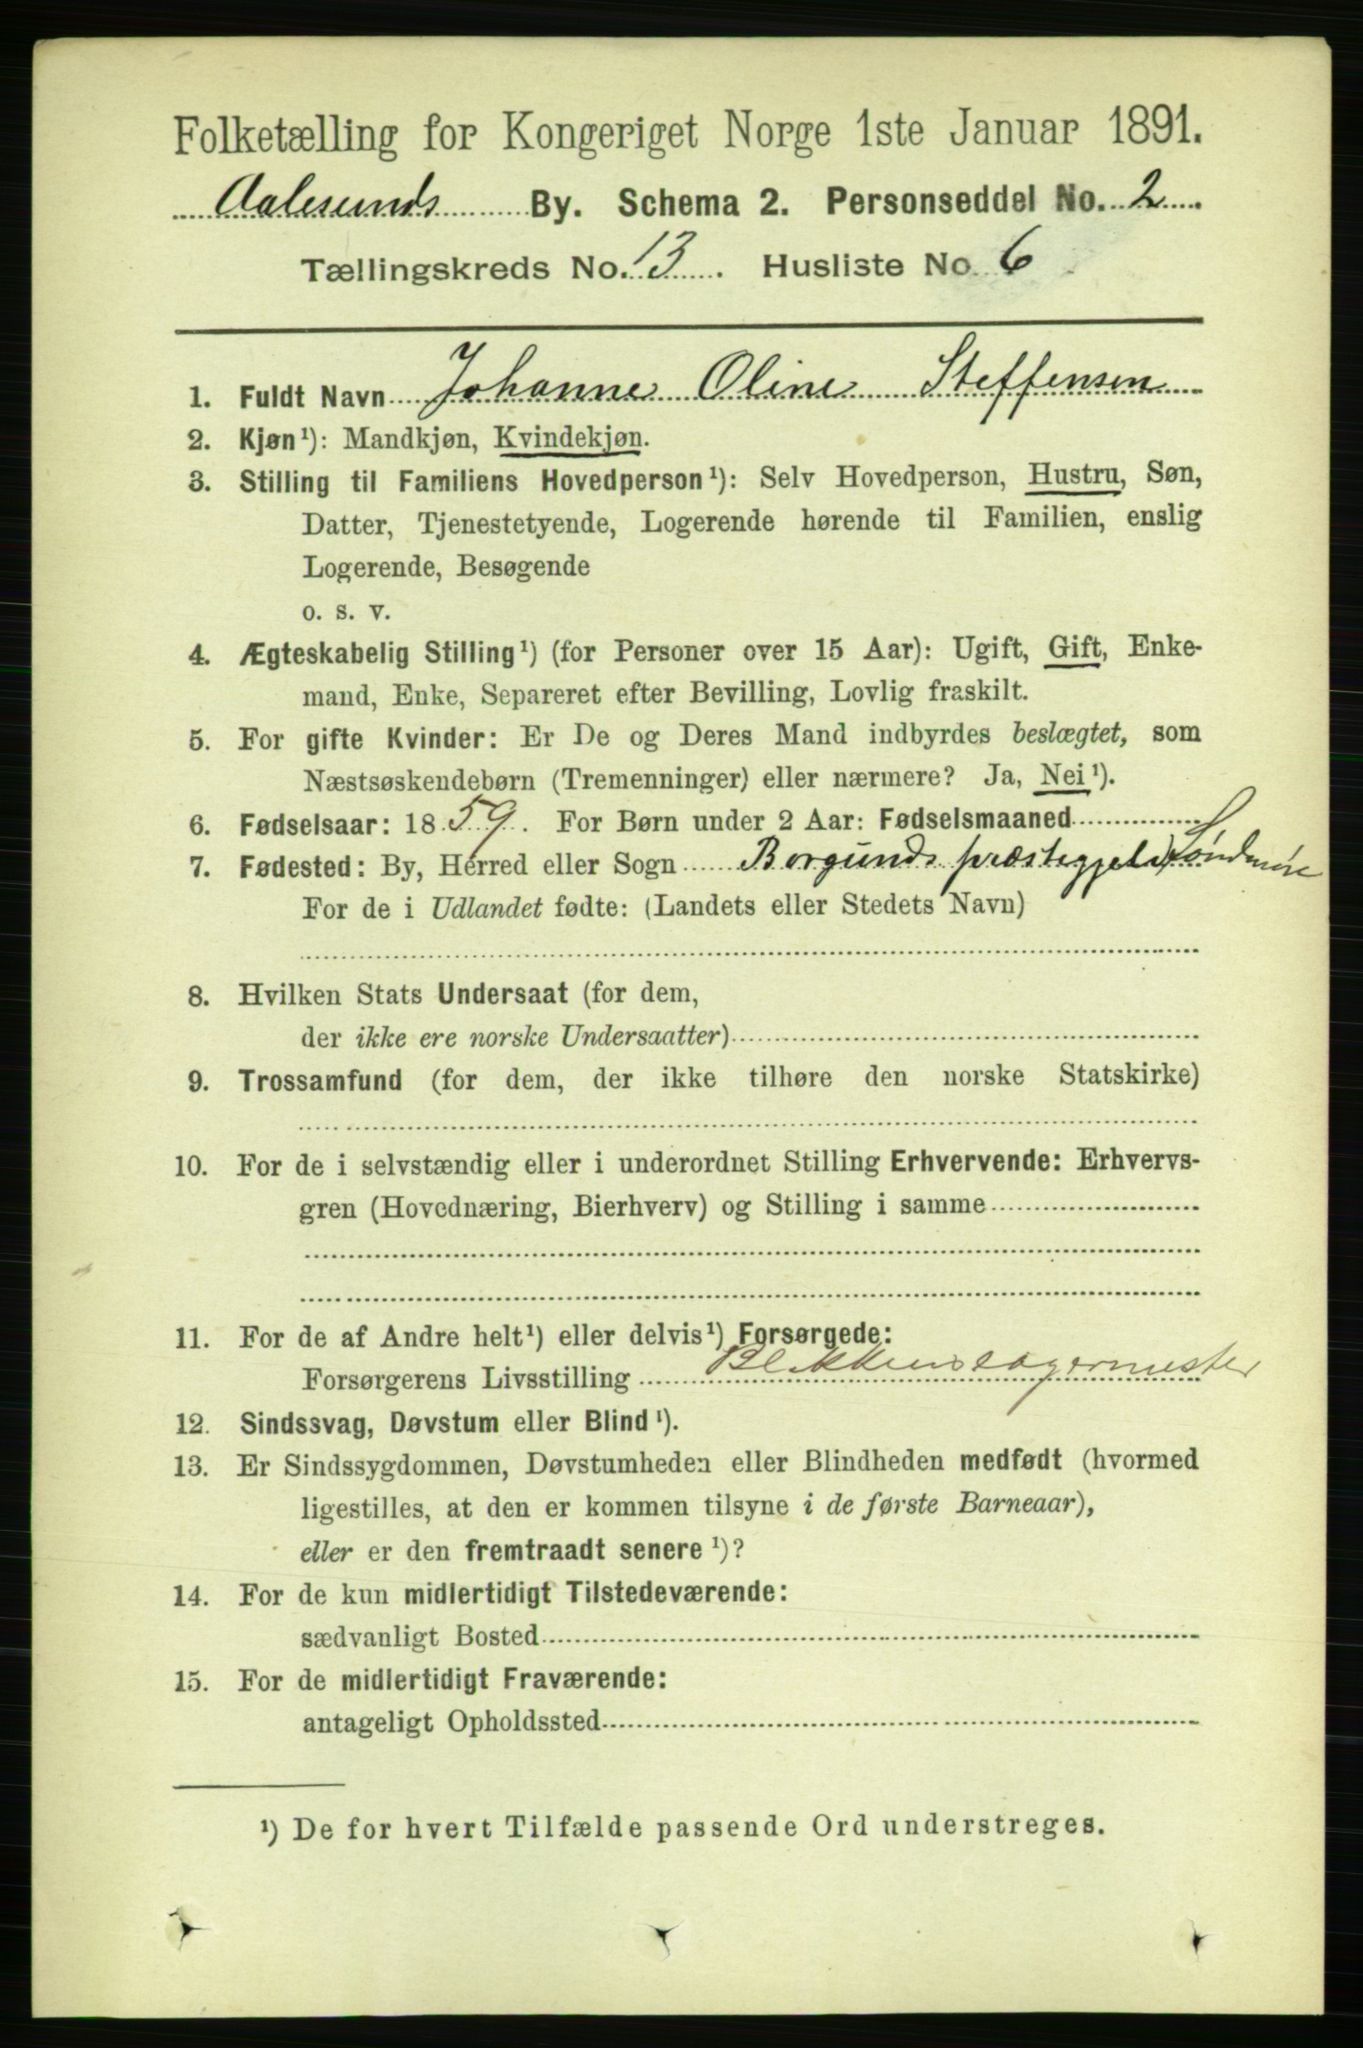 Folketælling for Kongeriget Norge 1ste Januar 1891.
Aalesunds By. Schema 2. Personseddel No. 2.
Tællingskreds No. 13. Husliste No. 6
1. Fuldt Navn Johanne Oline Steffensen
2. Kjøn¹): Mandkjøn, Kvindekjøn.
3. Stilling til Familiens Hovedperson¹): Selv Hovedperson, Hustru, Søn,
Datter, Tjenestetyende, Logerende hørende til Familien, enslig
Logerende, Besøgende
o. s. v.
4. Ægteskabelig Stilling¹) (for Personer over 15 Aar): Ugift, Gift, Enke-
mand, Enke, Separeret efter Bevilling, Lovlig fraskilt.
5. For gifte Kvinder: Er De og Deres Mand indbyrdes beslægtet, som
Næstsøskendebørn (Tremenninger) eller nærmere? Ja, Nei¹).
6. Fødselsaar: 1859. For Børn under 2 Aar: Fødselsmaaned
7. Fødested: By, Herred eller Sogn Borgunds præstegjeld, Søndmøre
For de i Udlandet fødte: (Landets eller Stedets Navn)
8. Hvilken Stats Undersaat (for dem,
der ikke ere norske Undersaatter)
9. Trossamfund (for dem, der ikke tilhøre den norske Statskirke)
10. For de i selvstændig eller i underordnet Stilling Erhvervende: Erhvervs-
gren (Hovednæring, Bierhverv) og Stilling i samme
11. For de af Andre helt¹) eller delvis¹) Forsørgede:
Forsørgerens Livsstilling Blikkenslagermester
12. Sindssvag, Døvstum eller Blind¹).
13. Er Sindssygdommen, Døvstumheden eller Blindheden medfødt (hvormed
ligestilles, at den er kommen tilsyne i de første Barneaar),
eller er den fremtraadt senere¹)?
14. For de kun midlertidigt Tilstedeværende:
sædvanligt Bosted
15. For de midlertidigt Fraværende:
antageligt Opholdssted
¹) De for hvert Tilfælde passende Ord understreges.